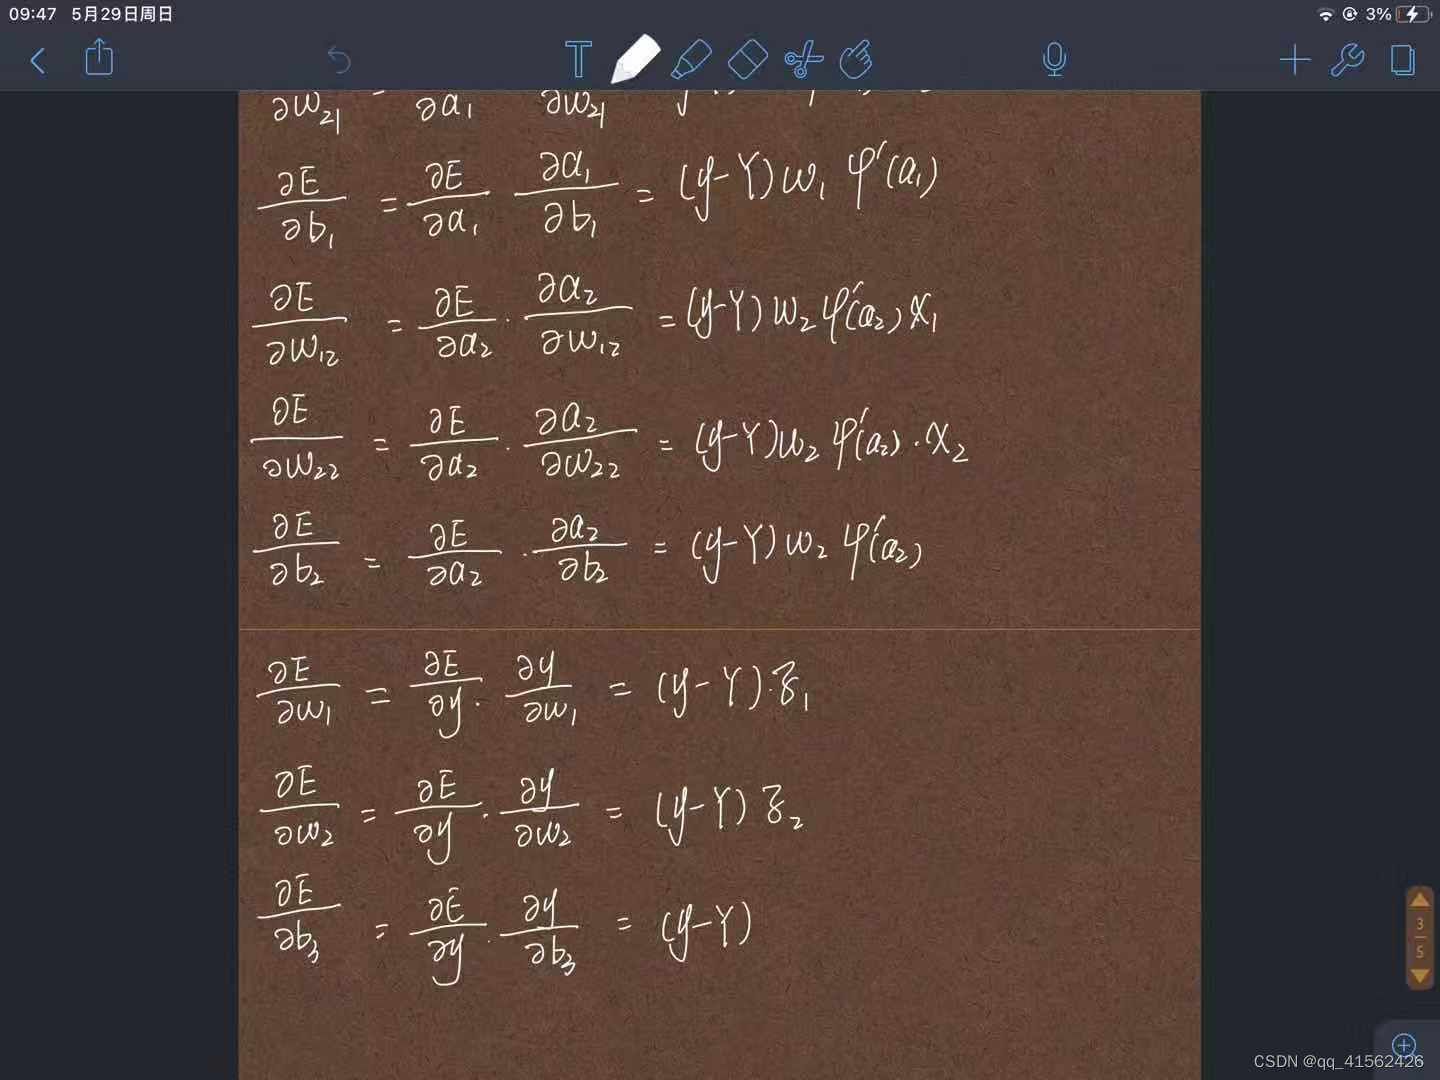 09:47 5月29日周日 3%
T
∂w₂₁ = ∂a₁ ∂w₂₁
∂E/∂b₁ = ∂E/∂a₁ ∂a₁/∂b₁ = (y-Y)w₁ φ'(a₁)
∂E/∂w₁₂ = ∂E/∂a₂ · ∂a₂/∂w₁₂ = (y-Y)w₂ φ'(a₂)x₁
∂E/∂w₂₂ = ∂E/∂a₂ · ∂a₂/∂w₂₂ = (y-Y)w₂ φ'(a₂)·x₂
∂E/∂b₂ = ∂E/∂a₂ · ∂a₂/∂b₂ = (y-Y)w₂ φ'(a₂)
∂E/∂w₁ = ∂E/∂y · ∂y/∂w₁ = (y-Y)·z₁
∂E/∂w₂ = ∂E/∂y · ∂y/∂w₂ = (y-Y)z₂
∂E/∂b₃ = ∂E/∂y · ∂y/∂b₃ = (y-Y)
3
5
CSDN @qq_41562426